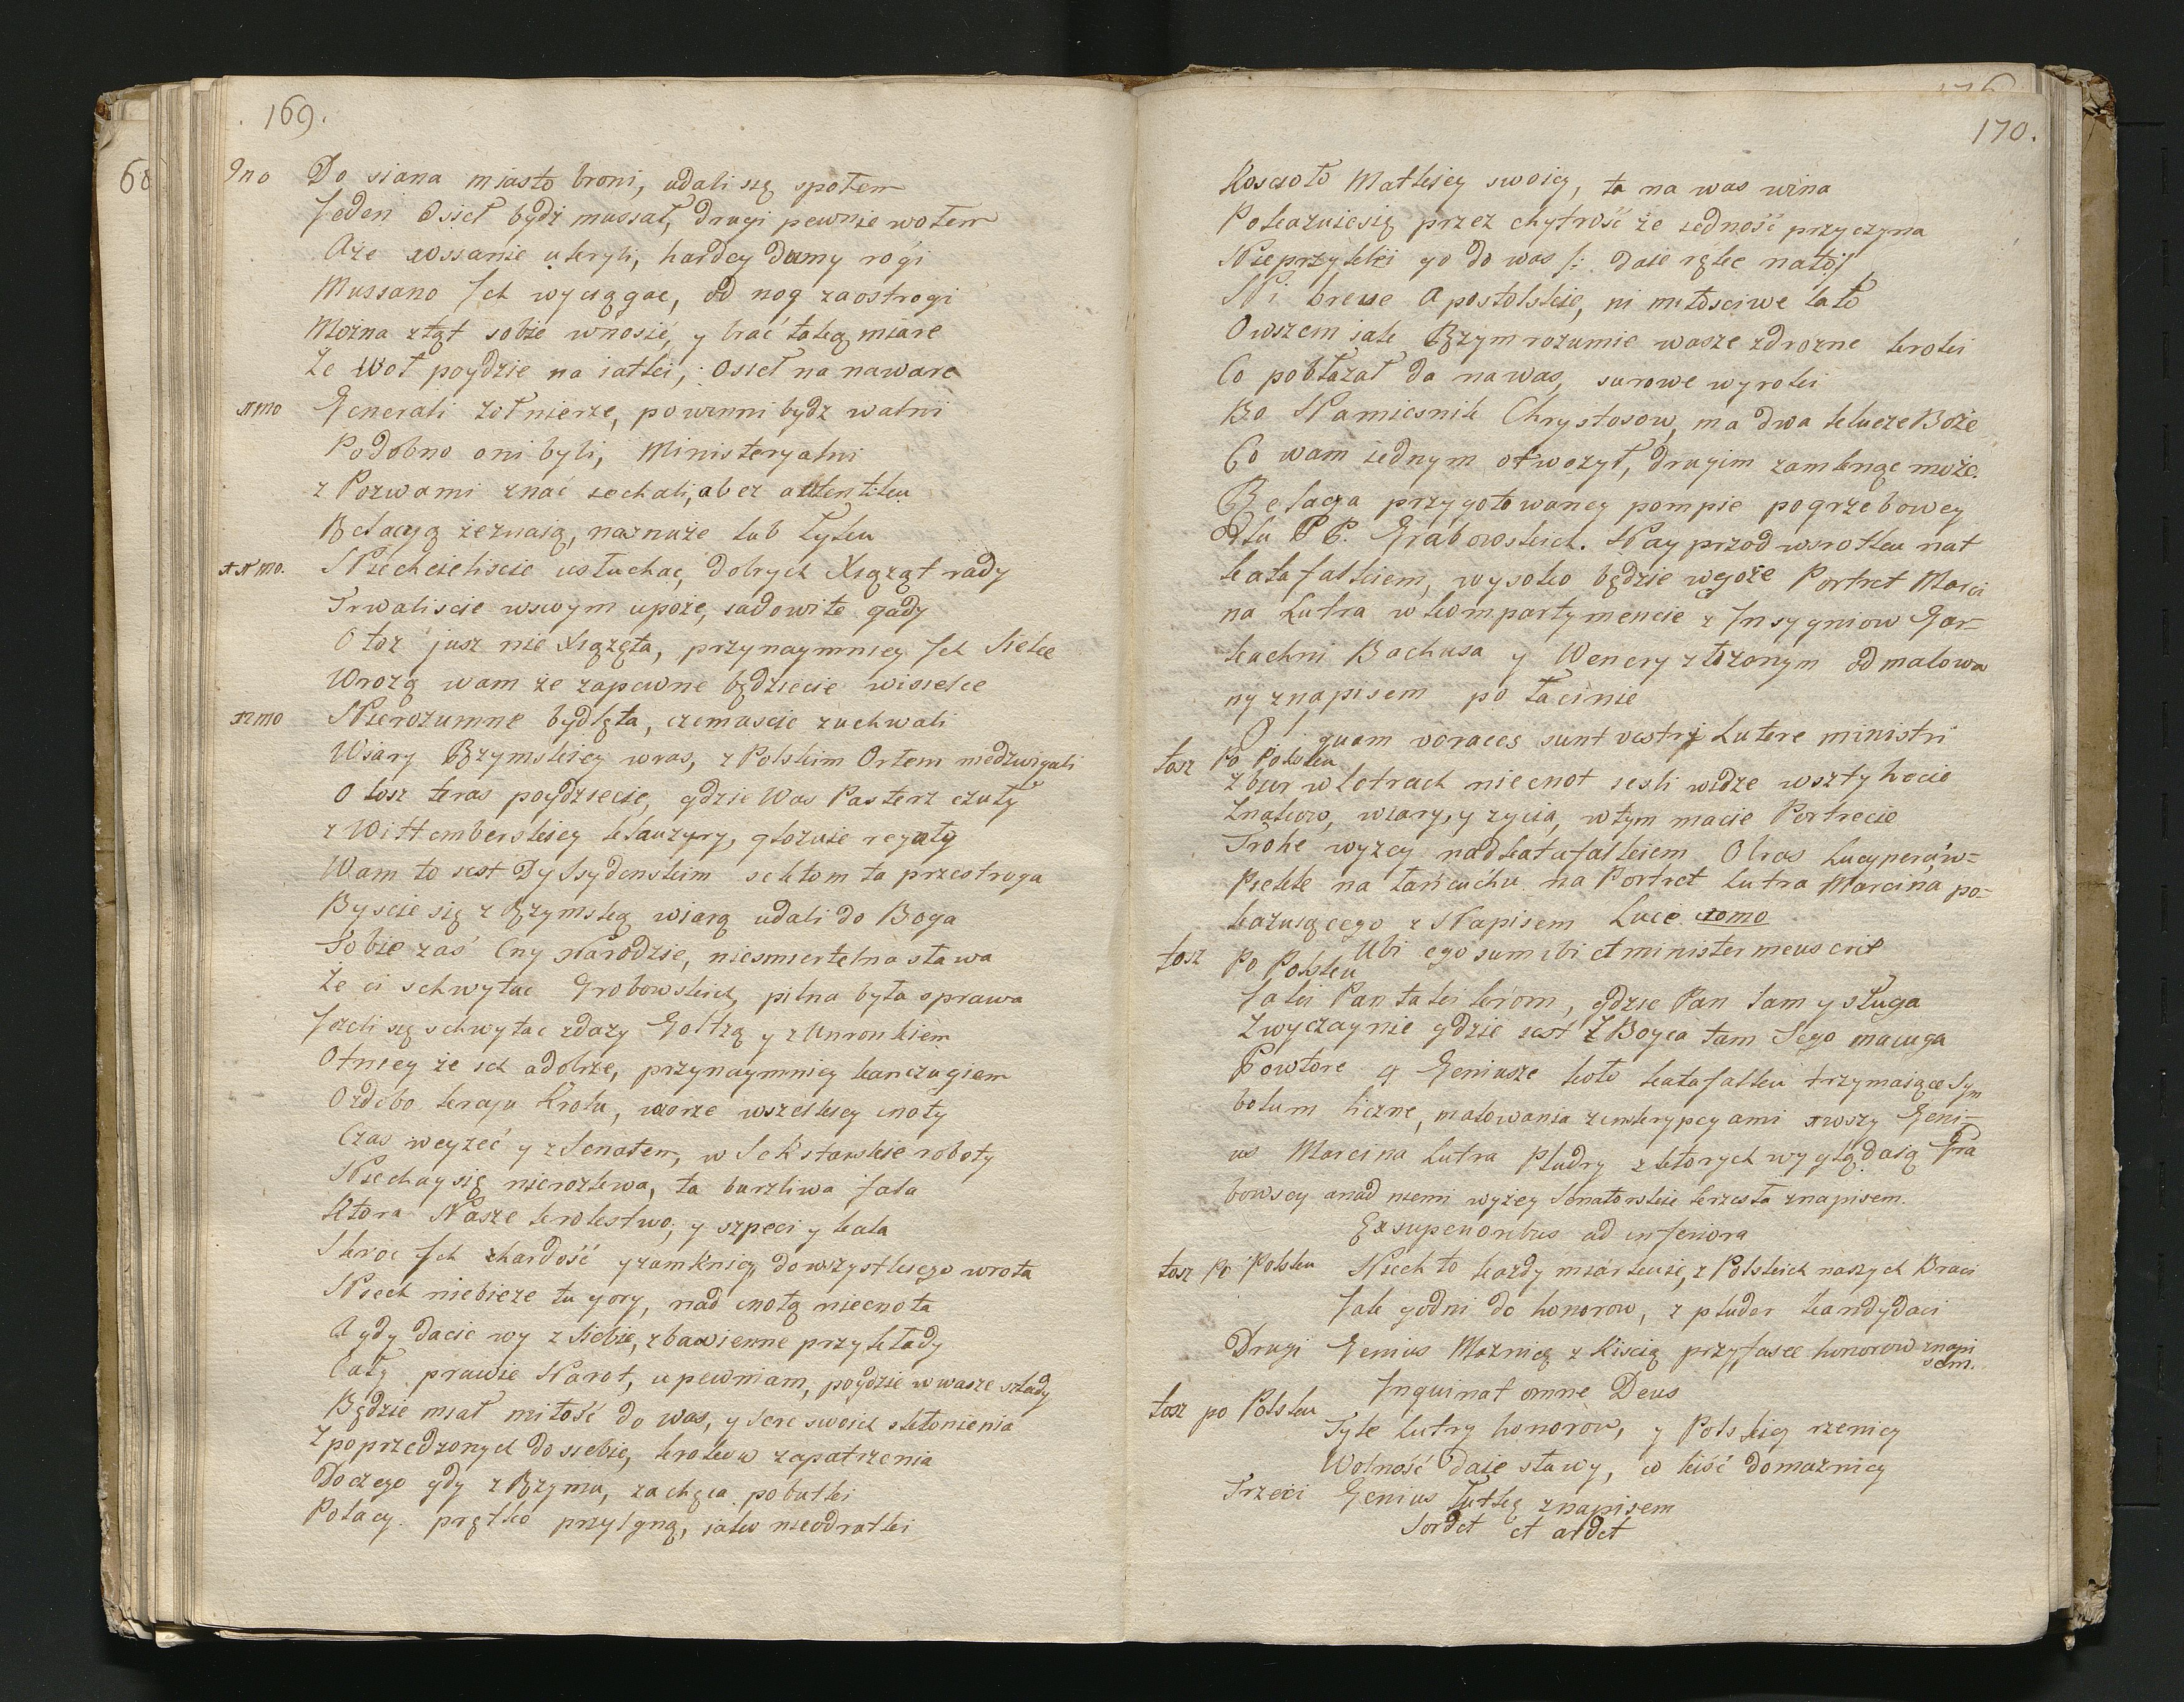 169.
9no Do siana miasto broni, udali się społem
Jeden Osieł bydź mussał, drugi pewnie wołem
Aże wossanie ukryli, hardey dumy rogi
Mussano Ich wyciągac, od nog za ostrogi
Można ztąt sobie wnosić, y brać taką miare
Że Woł poydzie na iatki, Osieł na naware
Generali żołnierze, powinni bydz walni
Podobno oni byli, Ministeryalni
z Pozwami znać iechali, a bez autentiku
Relacyą zeznaią, na nuże lub łyku
Niechcieliscie usłuchac, dobrych Xiąząt rady
Trwaliscie wswym upoże, iadowite gady
Otoz jusz nie Xiązęta, przynaymniey Ich Sielce
Wrozą wam że zapewne będziecie wisielce
Nierozumne bydlęta, czemuscie zuchwali
Wiary Rzymskiey wras, z Polskim Orłem niedzwigali
Otosz teras poydziecie, gdzie Was Pasterz czuły
z Wittemberskiey klauzury, głozuie reguły
Wam to iest Dyssydenskim sektom ta przestroga
Byscie się z Rzymską wiarą udali do Boga
Tobie zaś Cny Narodzie, niesmiertelna sława
Że ci schwytac Grobowskich, pilna była sprawa
Jezeli się schwytac zdazy Goltzą y z Unronkiem
Otniey że ich adobrze, przynaymniey kanczugiem
Ozdobo kraju Krolu, wzorze wszelkiey cnoty
Czas weyzeć y z Senatem, w Sekstarskie roboty
Niechay się nierozlewa, ta burzliwa fala
Ktora Nasze krolestwo, y szpeci y kala
Skroc Ich zhardość y zamkniey, do wszystkiego wrota
Niech niebieze tu gory, nad cnotą niecnota
A gdy dacie wy z Siebie, zbawienne przykłady
Cały prawie Narot, upewniam, poydzie w wasze szlady
Będzie miał miłość do was, y serc swoich skłonienia
Z poprzedzonych do siebie, krokow zapatrzenia
Do czego gdy z Rzymu, zachęca pobutki
Polacy prętko przylgną, iako nieodrotki
170.
Koscioło Matkiey swoiey, ta na was wina
Pokazuiesię przez chytrość że iedność przyczyna
Nieprzytki go do was /: daie rękę nato :/
Ni breue Apostolskie, ni miłosciwe lato
Owszem iak Rzym rozumie wasze zdrozne kroki
Co pobłazał da na was, surowe wyroki
Bo Namiesnik Chrystosow, ma dwa klucze Boże
Co wam iednym otworzył, drugim zamknąc może.
Relacya przygotowaney pompie pogrzebowey
Dla PP. Grabowskich. Nay przod wsrotku nat
katafalkiem, wysoko będzie wgoże Portret Marci
na Lutra w kompartymencie z Insygniow Gar-
kuchni Bachusa y Wenery złożonym odmalowa
ny znapisem po łacinie
O! quam voraces sunt vestrij Lutere ministri
tosz Po Polsku
zbiur w lotrach niecnot iesli widze wsztyhecie
Znakow, wiary, y zycia, wtym macie Portrecie
Trohe wyzey nad katafalkiem Obras Lucyperaw-
Piekle na łańcuchu na Portret Lutra Marcina po-
kazuiącego z Napisem Luce
Ubi ego sum ibi et minister meus erit
tosz Po Polsku
Jaki Pan taki kram, gdzie Pan tam y sługa
Zwyczaynie gdzie iest Zboyca tam Jego maczuga
Powtore 4 Geniusze koło katafalku trzymaiące Sym
bolum liczne, malowania zinskrypcyami Geni-
us Marcina Lutra Pludry zktorych wyglądaią Gra
bowscy anad niemi wyżey Senatorskie krzesła znapisem.
Ex superioribus ad inferiora
tosz Po Polsku Niech to kazdy miarkuie, z Polskich naszych Braci
Jak godni do honorow, z pluder kandydaci
Drugi Genius Maznicę z Kiscią przyfasce honorow znapi
sem.
Inquinat omne Deus
tosz po Polsku
Tyle Lutry honorow, y Polskiey rzenicy
Wolność daie sławy, co kiść do maznicy
Trzeci Genius Łutkę znapisem
Sordet et ardet